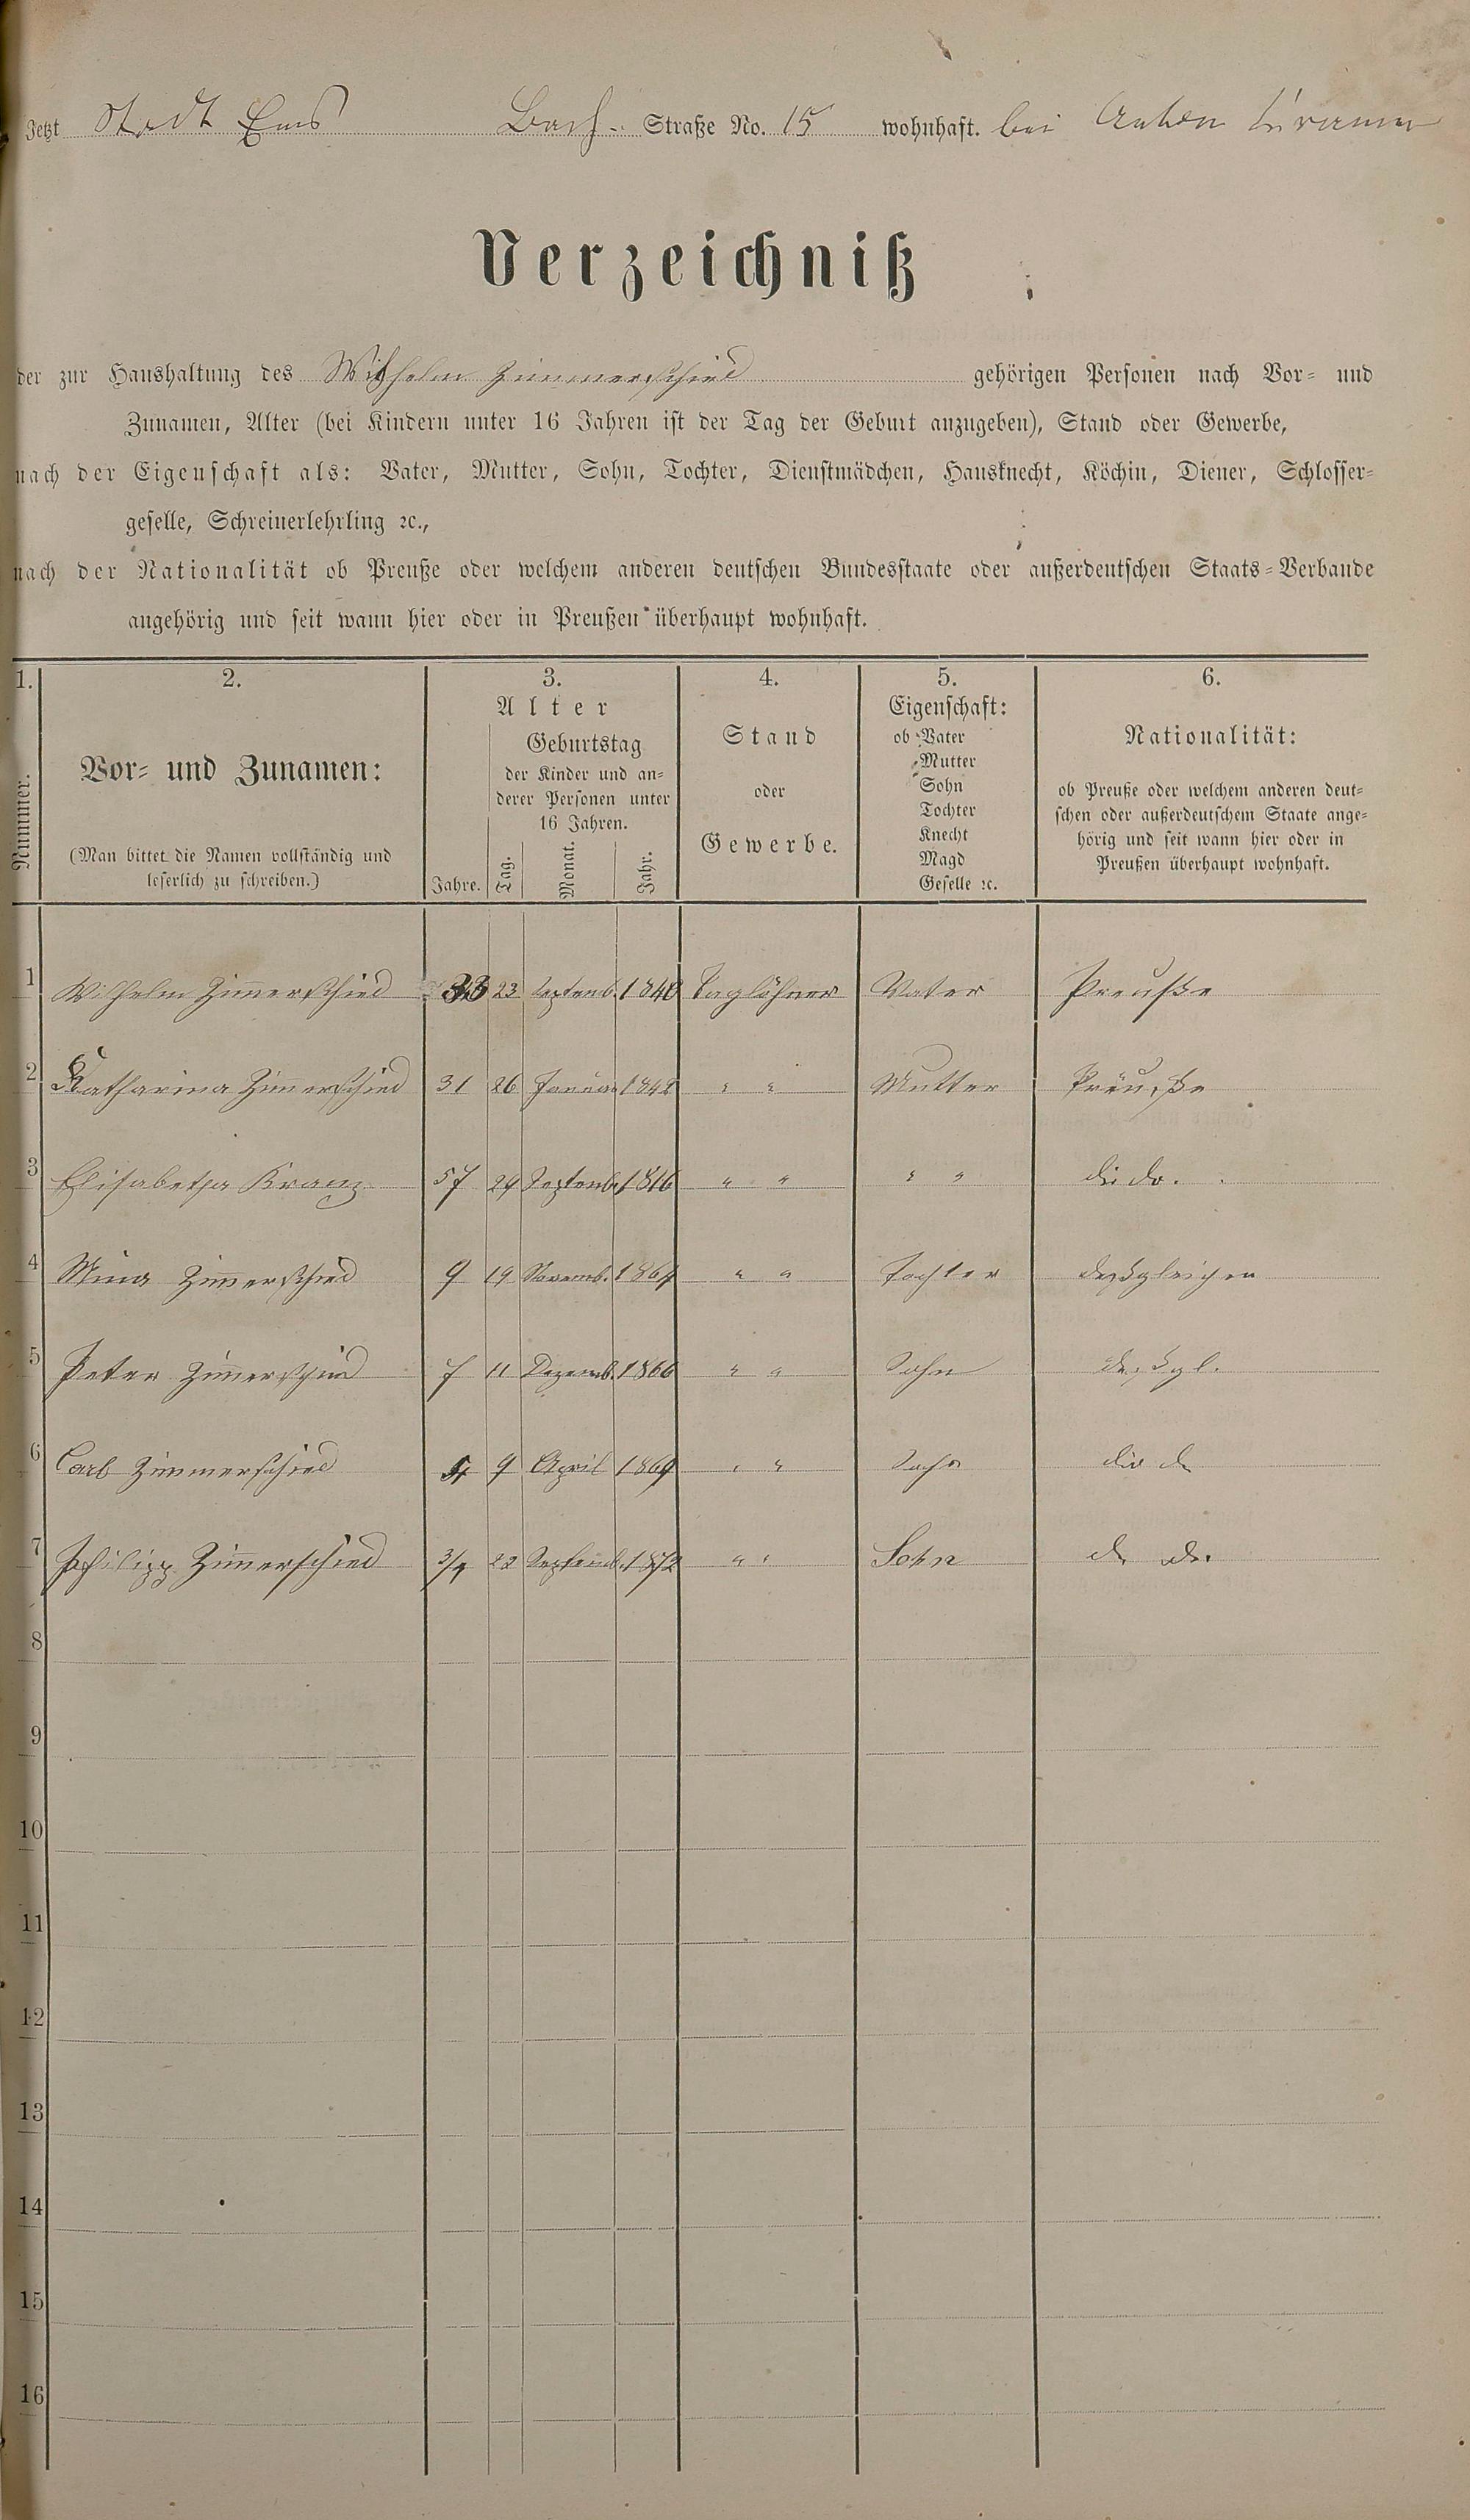 Jetzt Stadt Ems Bach- Straße No. 15 wohnhaft. bei Anton
Verzeichniß
der zur Haushaltung des Wilhelm Zimmerschied gehörigen Personen nach Vor- und
Zunamen, Alter (bei Kindern unter 16 Jahren ist der Tag der Geburt anzugeben), Stand oder Gewerbe,
nach der Eigenschaft als: Vater, Mutter, Sohn, Tochter, Dienstmädchen, Hausknecht, Köchin, Diener, Schlosser-
geselle, Schreinerlehrling ꝛc.,
nach der Nationalität ob Preuße oder welchem anderen deutschen Bundesstaate oder außerdeutschen Staats-Verbande
angehörig und seit wann hier oder in Preußen überhaupt wohnhaft.
1. 2. 3. 4. 5. 6.
Nummer.
Vor- und Zunamen:
(Man bittet die Namen vollständig und
leserlich zu schreiben.)
Alter
Geburtstag
der Kinder und an-
derer Personen unter
16 Jahren.
Jahre. Tag. Monat. Jahr.
Stand
oder
Gewerbe.
Eigenschaft:
ob Vater
Mutter
Sohn
Tochter
Knecht
Magd
Geselle ꝛc.
Nationalität:
ob Preuße oder welchem anderen deut-
schen oder außerdeutschem Staate ange-
hörig und seit wann hier oder in
Preußen überhaupt wohnhaft.
1 Wilhelm Zimerschied 33 23 Septemb. 1840 Taglöhner Vater Preuße
2 Katharina Zimerschied 31 26 Januar 1842 " " Mutter Preuße
3 Elisabetha Kranz 57 29 Septemb 1816 " " " " dido.
4 Mina Zimerschied 9 19 Novemb. 1864 " " Tochter desgleichen
5 Peter Zimerschied 7 11 Dezemb. 1866 " " Sohn desgl.
6 Carl Zimmerschied 4 9 April 1869 " " Sohn dido
7 Philipp Zimerschied 3/4 22 Septemb. 1872 " " Sohn do do.
8
9
10
11
12
13
14
15
16